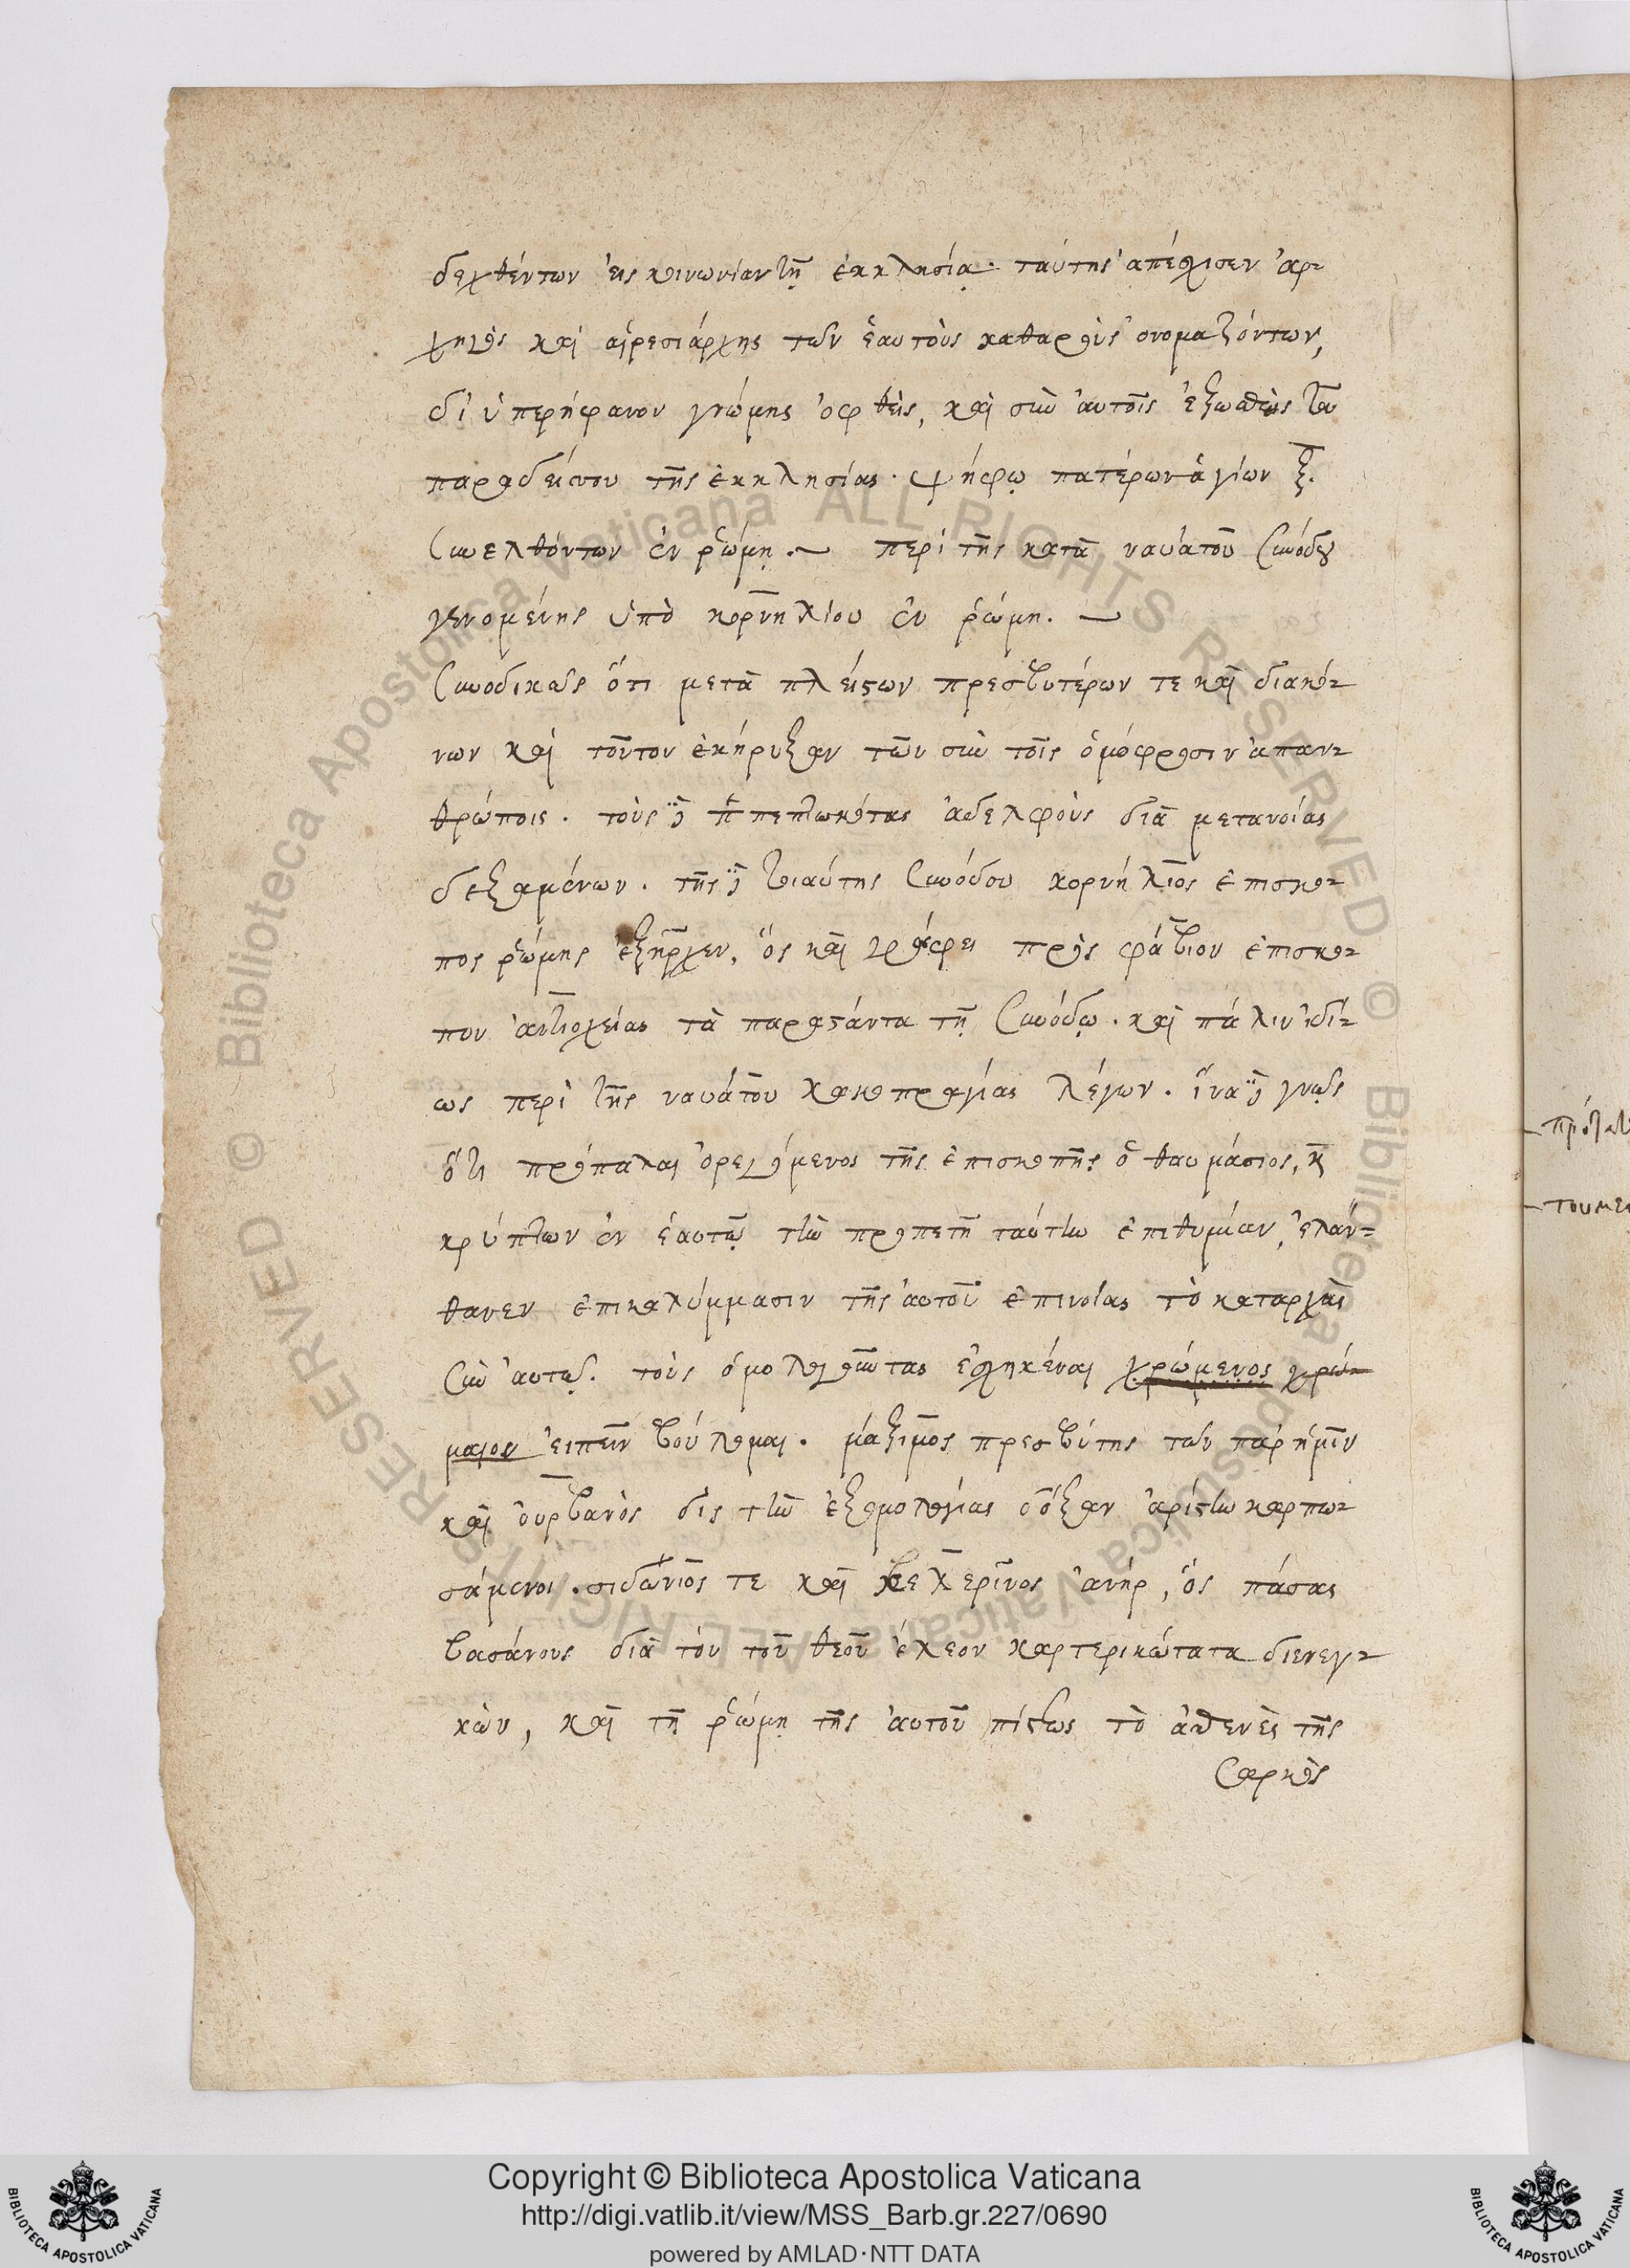 δεχθέντων εἰς κοινωνίαν τῇ ἐκκλησίᾳ. ταύτης ἀπέσχισεν ἀρ-
χηγὸς καὶ αἱρεσιάρχης τῶν ἑαυτοὺς καθαροὺς ὀνομαζόντων,
δι ὑπερήφανον γνώμης ὀφθεὶς, καὶ σὺν αὐτοῖς ἐξωσθεὶς τοῦ
παραδείσου τῆς ἐκκλησίας. ψήφῳ πατέρων ἁγίων ξ.
συνελθόντων ἐν ῥώμῃ. περὶ τῆς κατὰ ναυάτου συνόδου
γενομένης ὑπὸ κορνηλίου ἐν ῥώμη.
συνοδικῶς ὅτι μετὰ πλείστων πρεσβυτέρων τε καὶ διακό-
νων καὶ τοῦτον ἐκήρυξαν τῶν σὺν τοῖς ὁμόφροσιν ἀπαν-
θρώποις. τοὺς δὲ πεπτωκότας ἀδελφοὺς διὰ μετανοίας
δεξαμένων. τῆς δὲ τοιαύτης συνόδου κορνήλιος ἐπίσκο-
πος ῥώμης ἐξῆρχεν, ὅς καὶ γράφει πρὸς φάβιον ἐπισκο-
πον ἀντιοχείας τὰ παραστάντα τῇ συνόδῳ. καὶ πάλιν ἰδί-
ως περὶ τῆς ναυάτου κακοπραγίας λέγων. ἵνα δὲ γνῷς
ὅτι πρόπαλαι ὀρεγόμενος τῆς ἐπισκοπῆς ὁ θαυμάσιος, κ
κρύπτων ἐν ἑαυτῷ τὴν προπετῆ ταύτην ἐπιθυμίαν, ἐλάν-
θανεν ἐπικαλύμμασιν τῆς αὐτοῦ ἐπινοίας τὸ καταρχὰς
σὺν αὐτῷ. τοὺς ὁμολογοῦντας ἐσχηκέναι χρώμενος χρώ-
μαιον εἰπεῖν βούλομαι. μάξιμος πρεσβύτης τῶν παρ ἡμῖν
καὶ οὐρβανὸς δὶς τὴν ἐξομολογίας δόξαν ἀρίστην καρπω-
σάμενοι. σιδώνιος τε καὶ κελερῖνος ἀνήρ, ὅς πάσας
βασάνους διὰ τὸν τοῦ θεοῦ ἔλεον καρτερικώτατα διενεγ-
κὼν, καὶ τῇ ῥώμῃ τῆς αὐτοῦ πίστεως τὸ ἀσθενὲς τῆς
σαρκὸς
Copyright © Biblioteca Apostolica Vaticana
http://digi.vatlib.it/view/MSS_Barb.gr.227/0690
powered by AMLAD·NTT DATA